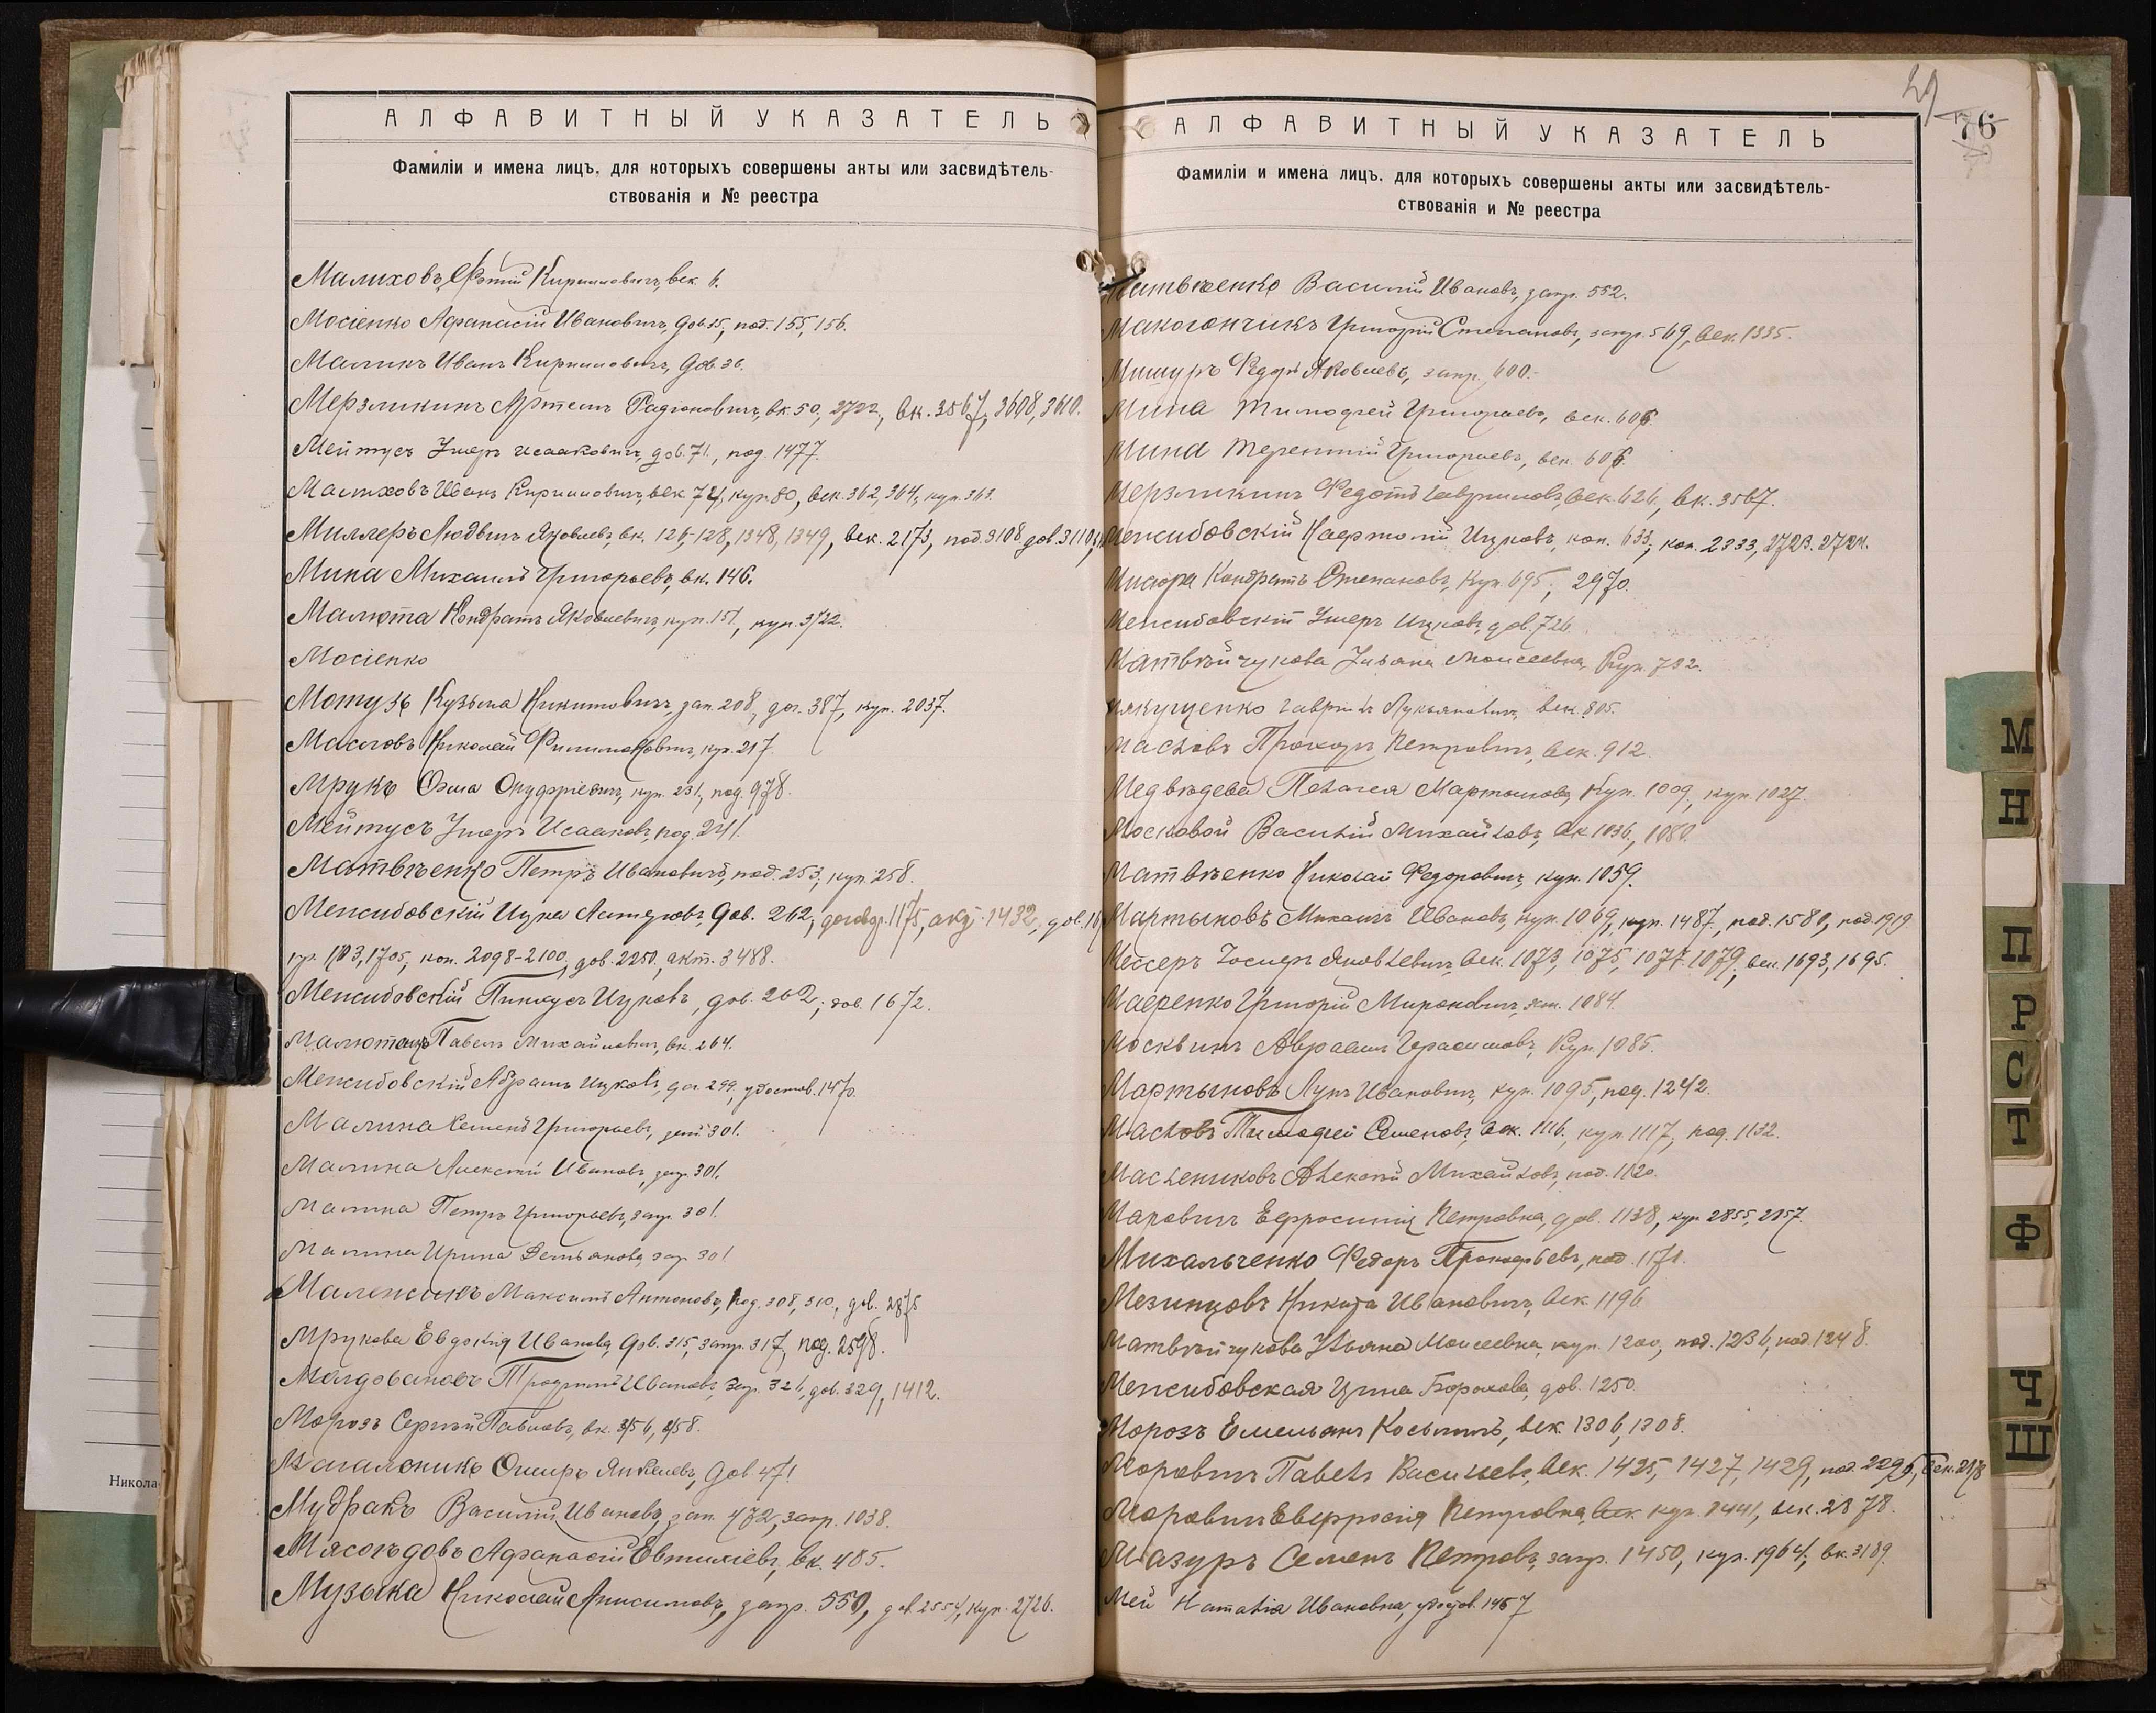 АЛФАВИТНЫЙ УКАЗАТЕЛЬ
Фамиліи и имена лицъ, для которыхъ совершены акты или засвидѣтель-
ствованія и № реестра
Малиховъ Кирилловичъ, век. 6.
Мосіенко Афанасій Ивановичъ, дов. 35, под. 155, 156.
Маликъ Иванъ Кирилловичъ, дов. 36.
Мерзликинъ Артемъ Радіоновичъ, вк. 50, 2722, вк. 3567, 3608, 3610.
Мейтусъ Умеръ Исааковичъ, дов. 71, под. 1477.
Малиховъ Иванъ Кирилловичъ, век. 74, куп. 80, век. 362, 364, куп. 363.
Миллеръ Людвигъ Яковлевъ, вк. 126-128, 1348, 1349, век. 2173, под. 3108, дов. 3110
Мина Михаилъ Григорьевъ, вк. 146.
Малюта Кондратъ Яковлевичъ, куп. 151, куп. 3122.
Мосіенко
Мотузъ Кузьма Никитовичъ, зап. 208, дог. 387, куп. 2037.
Масловъ Николай Филимоновичъ, куп. 217.
Мрукъ Фома Онуфріевичъ, куп. 231, под. 978.
Мейтусъ Умеръ Исааковъ, под. 241.
Матвѣенко Петръ Ивановичъ, под. 253, куп. 258.
Менсибовскій Ицка дов. 262, 1175, 1432, дов.
1703, 1705, коп. 2098-2100, дов. 2250, акт. 3488.
Менсибовскій Пинкусъ Ицковъ, дов. 262, дов. 1672.
Павелъ Михайловичъ, вк. 264.
Менсибовскій Абрамъ Ицковъ, дог. 299, удостов. 1470.
Малина Семенъ Григорьевъ, 301.
Малина Алексѣй Ивановъ, запр. 301.
Малина Петръ Григорьевъ, запр. 301.
Малина Ирина Демьянова, зап. 301
Максимъ Антоновъ, под. 308, 310, дов. 2875
Мрукова Евдокія Иванова, дов. 315, запр. 317, под. 2598.
Молдовановъ Трофимъ Ивановъ, запр. 326, дов. 329, 1412.
Морозъ Сергѣй Павловъ, вк. 356, 358.
Ошеръ Янкелевъ, дов. 471
Мудракъ Василій Ивановъ, зап. 472, запр. 1038.
Мясоѣдовъ Афанасій Евтихіевъ, вк. 485.
Музыка Николай Анисимовъ, запр. 550, дов. 2554, куп. 2726.
Никола
29
76
АЛФАВИТНЫЙ УКАЗАТЕЛЬ
Фамиліи и имена лицъ, для которыхъ совершены акты или засвидѣтель-
ствованія и № реестра
Василій Ивановъ, запр. 552.
Макогончикъ Григорій Степановъ, запр. 569, век. 1335.
Мишуръ Федоръ Яковлевъ, запр. 600.
Мина Тимофей Григорьевъ, век. 606
Мина Терентій Григорьевъ, век. 606.
Мерзликинъ Федотъ Гавриловъ, век. 626, вк. 3567.
Менсибовскій Нафтолій Ицковъ, коп. 633, коп. 2333, 2723, 2724.
Кондратъ Степановъ, куп. 695, 2970.
Менсибовскій Умеръ Ицковъ, дов. 726
Матвѣйчукова Ульяна Моисеевна, куп. 792.
Гаврилъ Лукьяновичъ, век. 805.
Масловъ Прокопъ Петровичъ, век. 912.
Медвѣдева Пелагея Мартынова, куп. 1009, куп. 1027.
Московой Василій Михайловъ, вк. 1036, 1080.
Матвѣенко Николай Федоровичъ, куп. 1059.
Мартыновъ Михаилъ Ивановъ, куп. 1069, куп. 1487, под. 1580, под. 1919
Мессеръ Яковлевичъ, век. 1073, 1075, 1077, 1079, век. 1693, 1695.
Григорій Мироновичъ, зап. 1084.
Москвинъ Авраамъ Герасимовъ, куп. 1085.
Мартыновъ Лука Ивановичъ, куп. 1095, под. 1242.
Масловъ Тимофей Семеновъ, век. 1116, куп. 1117, под. 1132.
Маслениковъ Алексѣй Михайловъ, под. 1120.
Маровичъ Ефросинія Петровна, дов. 1138, куп. 2855, 2857.
Михальченко Федоръ Прокофьевъ, под. 1171.
Мезинцовъ Никита Ивановичъ, век. 1196
Матвѣйчукова Ульяна Моисеевна, куп. 1200, под. 1236, под. 1248.
Менсибовская Цина Борохова, дов. 1250
Морозъ Емельянъ Косьминъ, век. 1306, 1308.
Моровичъ Павелъ Васильевъ, век. 1425, 1427, 1429, под. 2296, век. 2878
Моровичъ Евфросія Петровна, век. куп. 1441, век. 2878.
Мазуръ Семенъ Петровъ, запр. 1450, куп. 1964, вк. 3189.
Мей Наталія Ивановна, удостов. 1467
М
Н
П
Р
С
Т
Ф
Ч
Ш